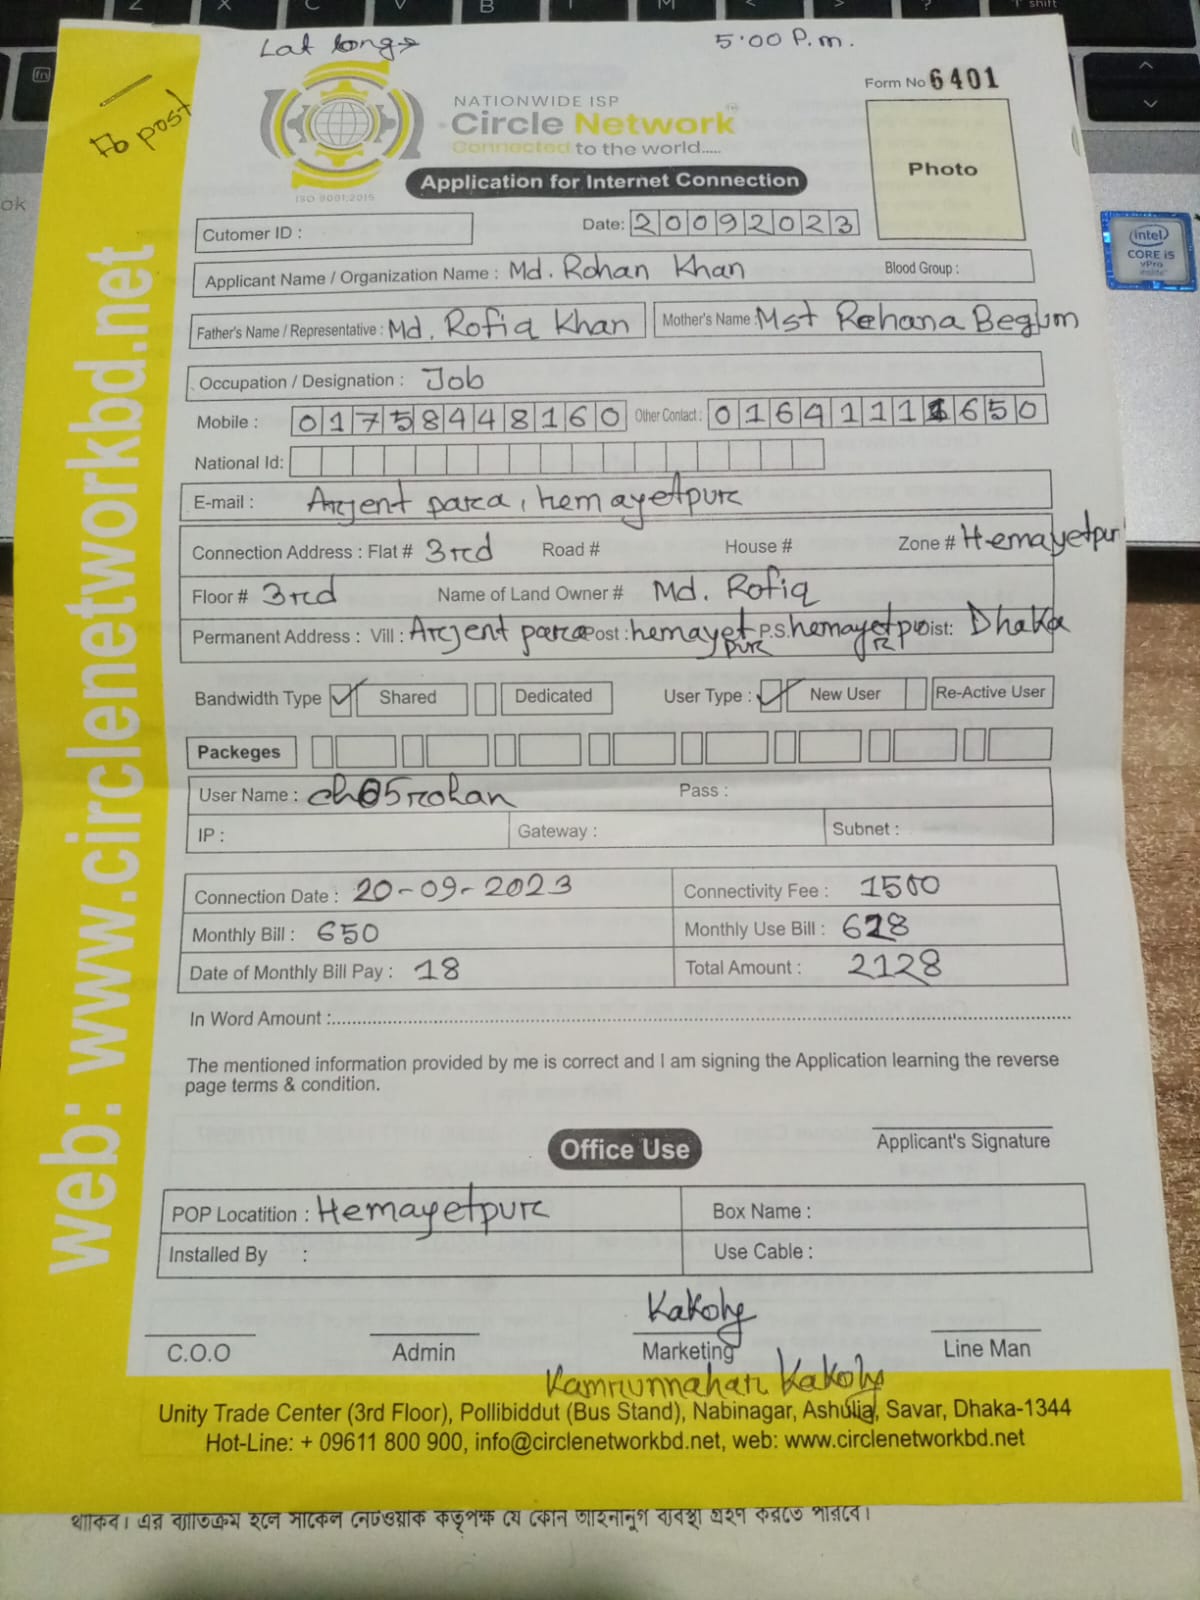 Lat long→ 5:00 P.m.
Fb post
Form No 6401
NATIONWIDE ISP
Circle Network™
Connected to the world.....
ISO 9001:2015
Application for Internet Connection
Photo
Cutomer ID :
Date: 20092023
Applicant Name / Organization Name : Md. Rohan Khan Blood Group :
Father's Name / Representative : Md. Rofiq Khan Mother's Name : Mst Rehana Begum
Occupation / Designation : Job
Mobile : 01758448160 Other Contact : 01641111650
National Id:
E-mail : Arjent para, hemayetpur
Connection Address : Flat # 3rd Road # House # Zone # Hemayetpur
Floor # 3rd Name of Land Owner # Md. Rofiq
Permanent Address : Vill : Arjent para Post : hemayetpur P.S. hemayetpur Dist: Dhaka
Bandwidth Type Shared Dedicated User Type : New User Re-Active User
Packeges
User Name : ch05rohan Pass :
IP : Gateway : Subnet :
Connection Date : 20-09-2023 Connectivity Fee : 1500
Monthly Bill : 650 Monthly Use Bill : 628
Date of Monthly Bill Pay : 18 Total Amount : 2128
In Word Amount :
The mentioned information provided by me is correct and I am signing the Application learning the reverse
page terms & condition.
Applicant's Signature
Office Use
POP Locatition : Hemayetpur Box Name :
Installed By : Use Cable :
Kakoly
C.O.O Admin Marketing Line Man
Kamrunnahar Kakoly
Unity Trade Center (3rd Floor), Pollibiddut (Bus Stand), Nabinagar, Ashulia, Savar, Dhaka-1344
Hot-Line: + 09611 800 900, info@circlenetworkbd.net, web: www.circlenetworkbd.net
web: www.circlenetworkbd.net
থাকিব। এর ব্যতিক্রম হলে সার্কেল নেটওয়াক কতৃপক্ষ যে কোন আইনানুগ ব্যবস্থা গ্রহণ করতে পারবে।
intel
CORE i5
vPro
inside™